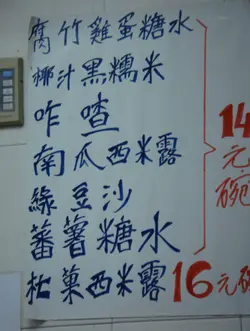 腐竹雞蛋糖水
椰汁黑糯米
咋喳
南瓜西米露
綠豆沙
蕃薯糖水
14元/碗
杧菓西米露 16元/碗